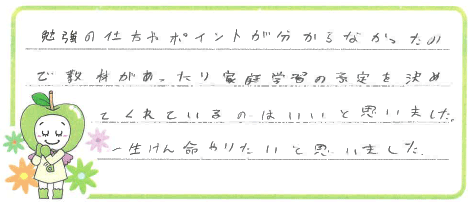 勉強の仕方やポイントが分からなかったの
で教材があったり家庭学習の予定を決め
てくれているのはいいと思いました。
一生けん命やりたいと思いました。